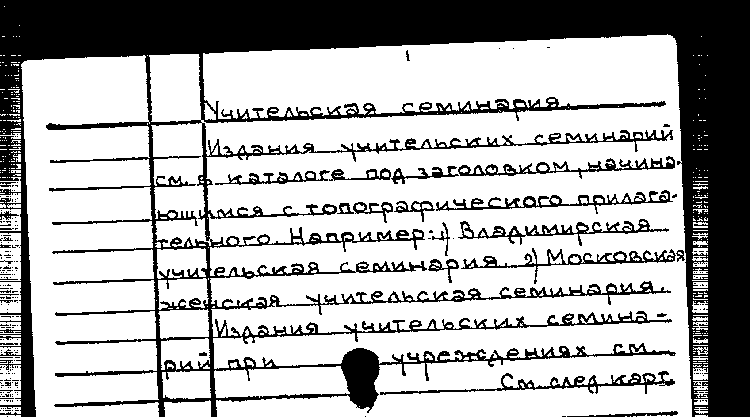 Учительская семинария.
Издания учительских семинарий
см. в каталоге под заголовком, начина-
ющимся с топографического прилага-
тельного. Например: 1) Владимирская
учительская семинария. 2) Московская
женская учительская семинария.
Издания учительских семина-
рий при учреждениях см.
См. след. карт.